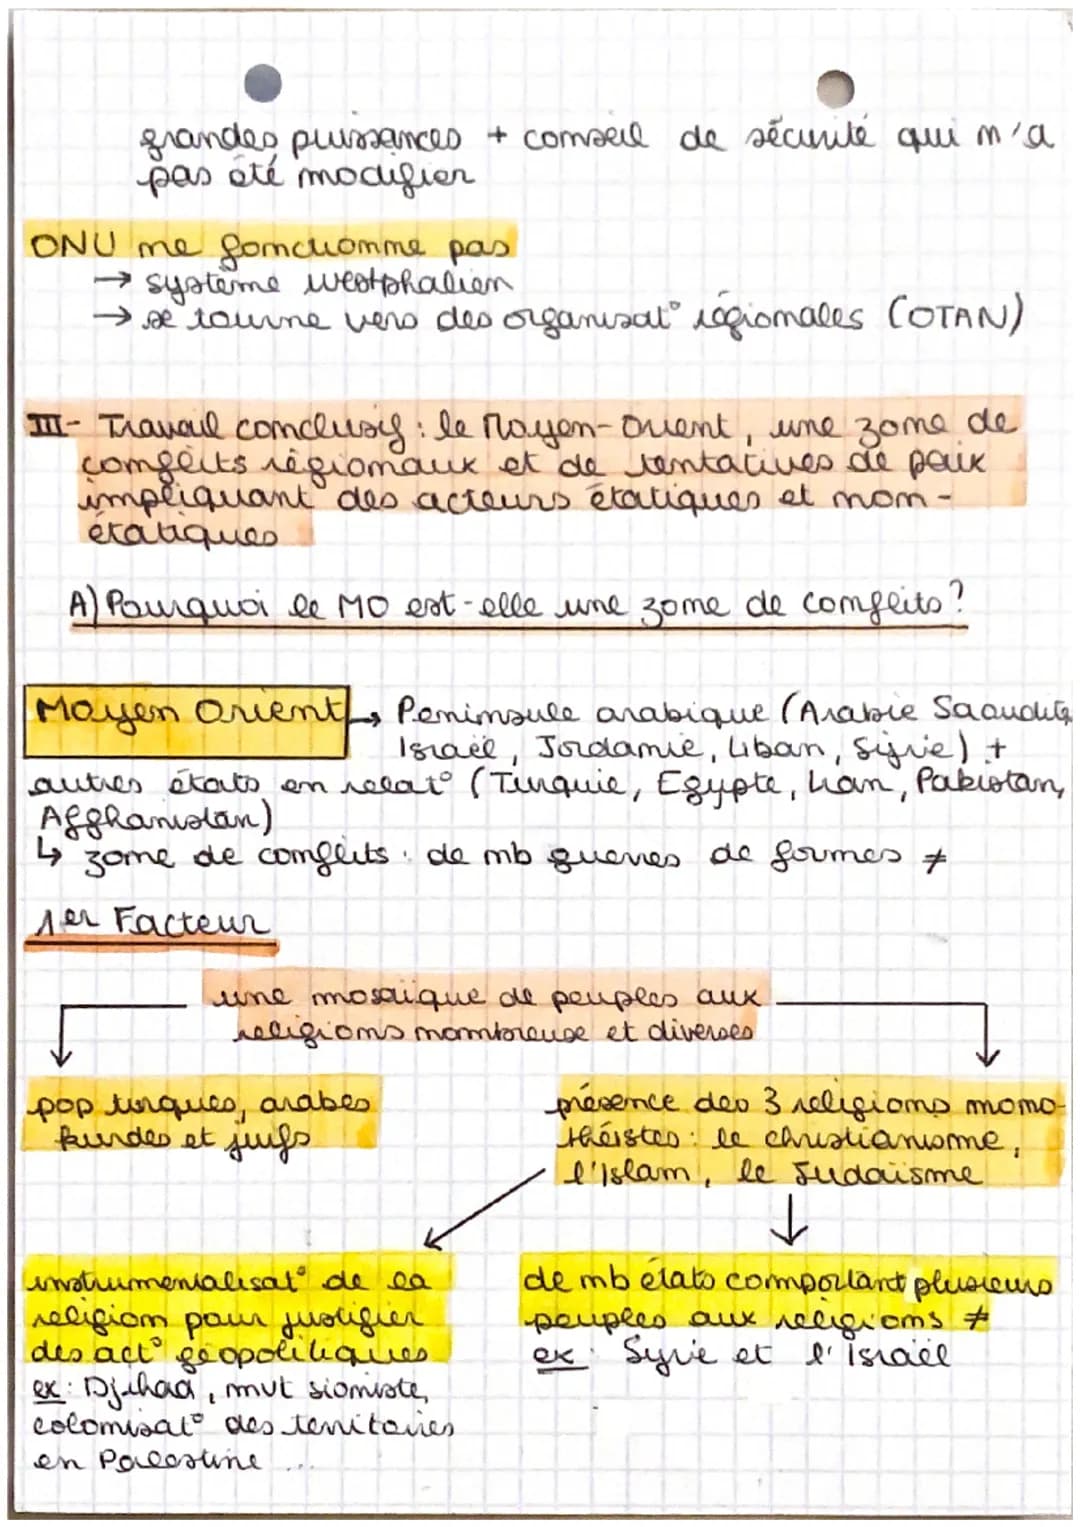 grandes puissances + conseil de sécurité qui n'a
pas été modifier
ONU ne fonctionne pas
→ système westphalien
→ se tourne vers des organisat° régionales (OTAN)
III- Travail conclusif : le Moyen-Orient, une zone de
conflits régionaux et de tentatives de paix
impliquant des acteurs étatiques et non-
étatiques
A) Pourquoi le MO est-elle une zone de conflits ?
Moyen Orient ↳ Peninsule arabique (Arabie Saoudite,
Israël, Jordanie, Liban, Syrie) +
autres états en relat° (Turquie, Egypte, Iran, Pakistan,
Afghanistan)
↳ zone de conflits : de nb guerres de formes ≠
1er Facteur
une mosaïque de peuples aux
religions nombreuse et diverses
pop turques, arabes
kurdes et juifs
présence des 3 religions mono-
théistes : le christianisme,
l'Islam, le Judaïsme
instrumentalisat° de la
religion pour justifier
des act° géopolitiques
ex : Djihad, mvt sioniste,
colonisat° des territoires
en Palestine ...
de nb états comportant plusieurs
peuples aux religions ≠
ex : Syrie et l'Israël